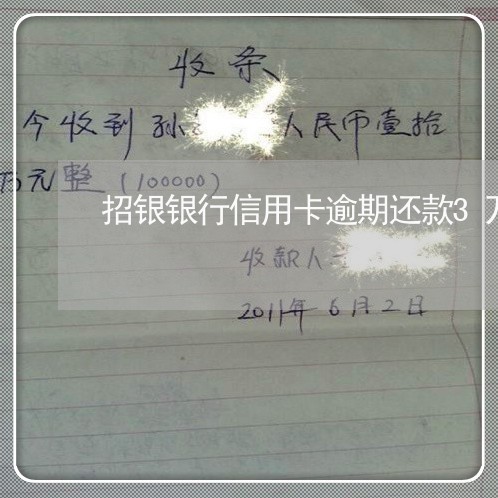 收条
今收到孙 人民币壹拾
万元整（100000）
招银银行信用卡逾期还款3万
收款人
2011年6月2日